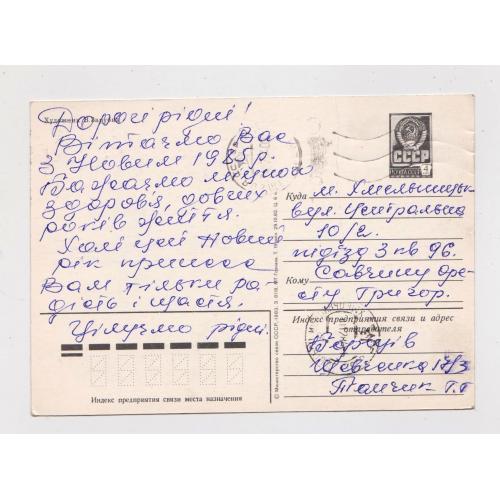 Художник
Дорогі рідні!
Вітаємо Вас
З Новим 1985 р.
Бажаємо міцного
здоров'я, довгих
років життя.
Хай цей Новий
рік принесе
Вам тільки ра-
дість і щастя.
Цілуємо рідні.
Индекс предприятия связи места назначения
© Министерство связи СССР, 1983.
СССР
Куда м. Хмельницьк
вул. Центральна
10/2.
підїзд 3 кв 96.
Кому Савчишу Оре-
сту Григор.
Индекс предприятия связи и адрес
отправителя
Борщів
Шевченка 17/3